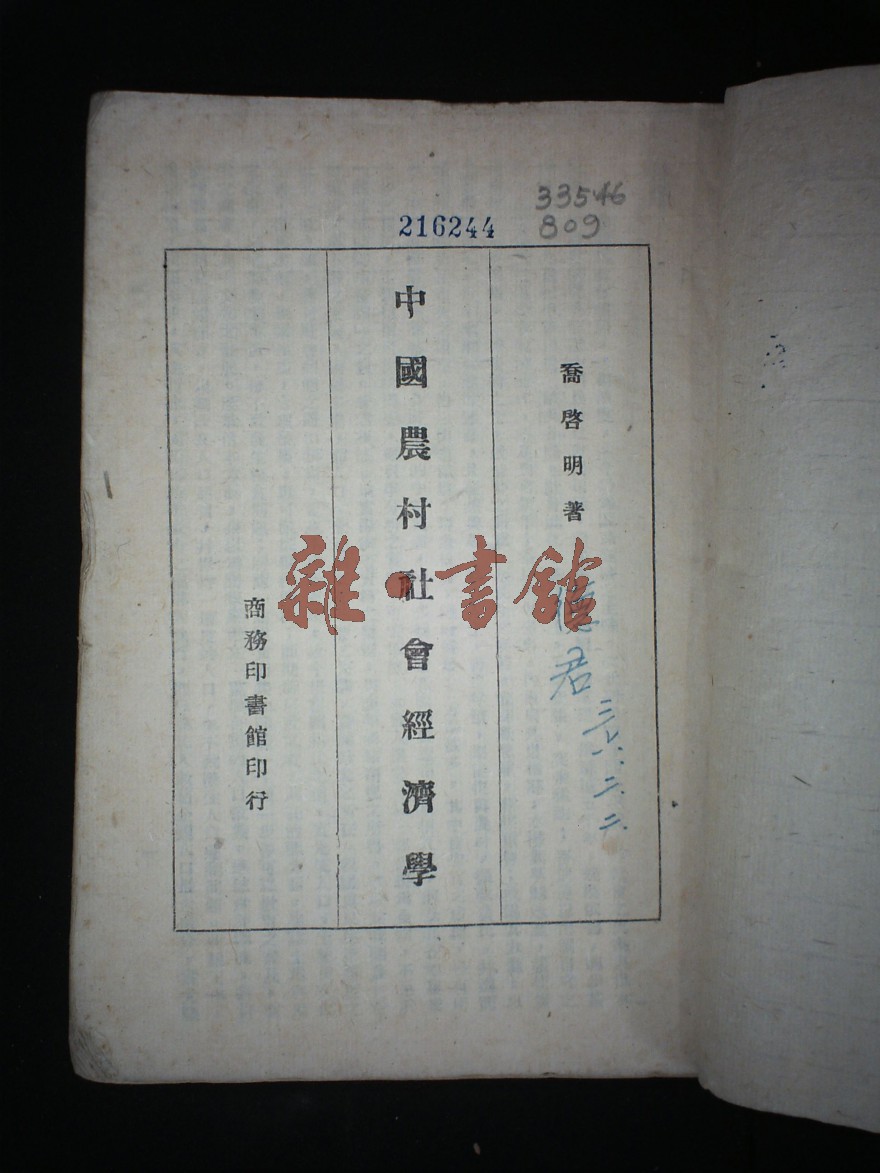 33546
809
216244
喬啓明著
中國農村社會經濟學
商務印書館印行
雜·書館
君
三六.二.二.